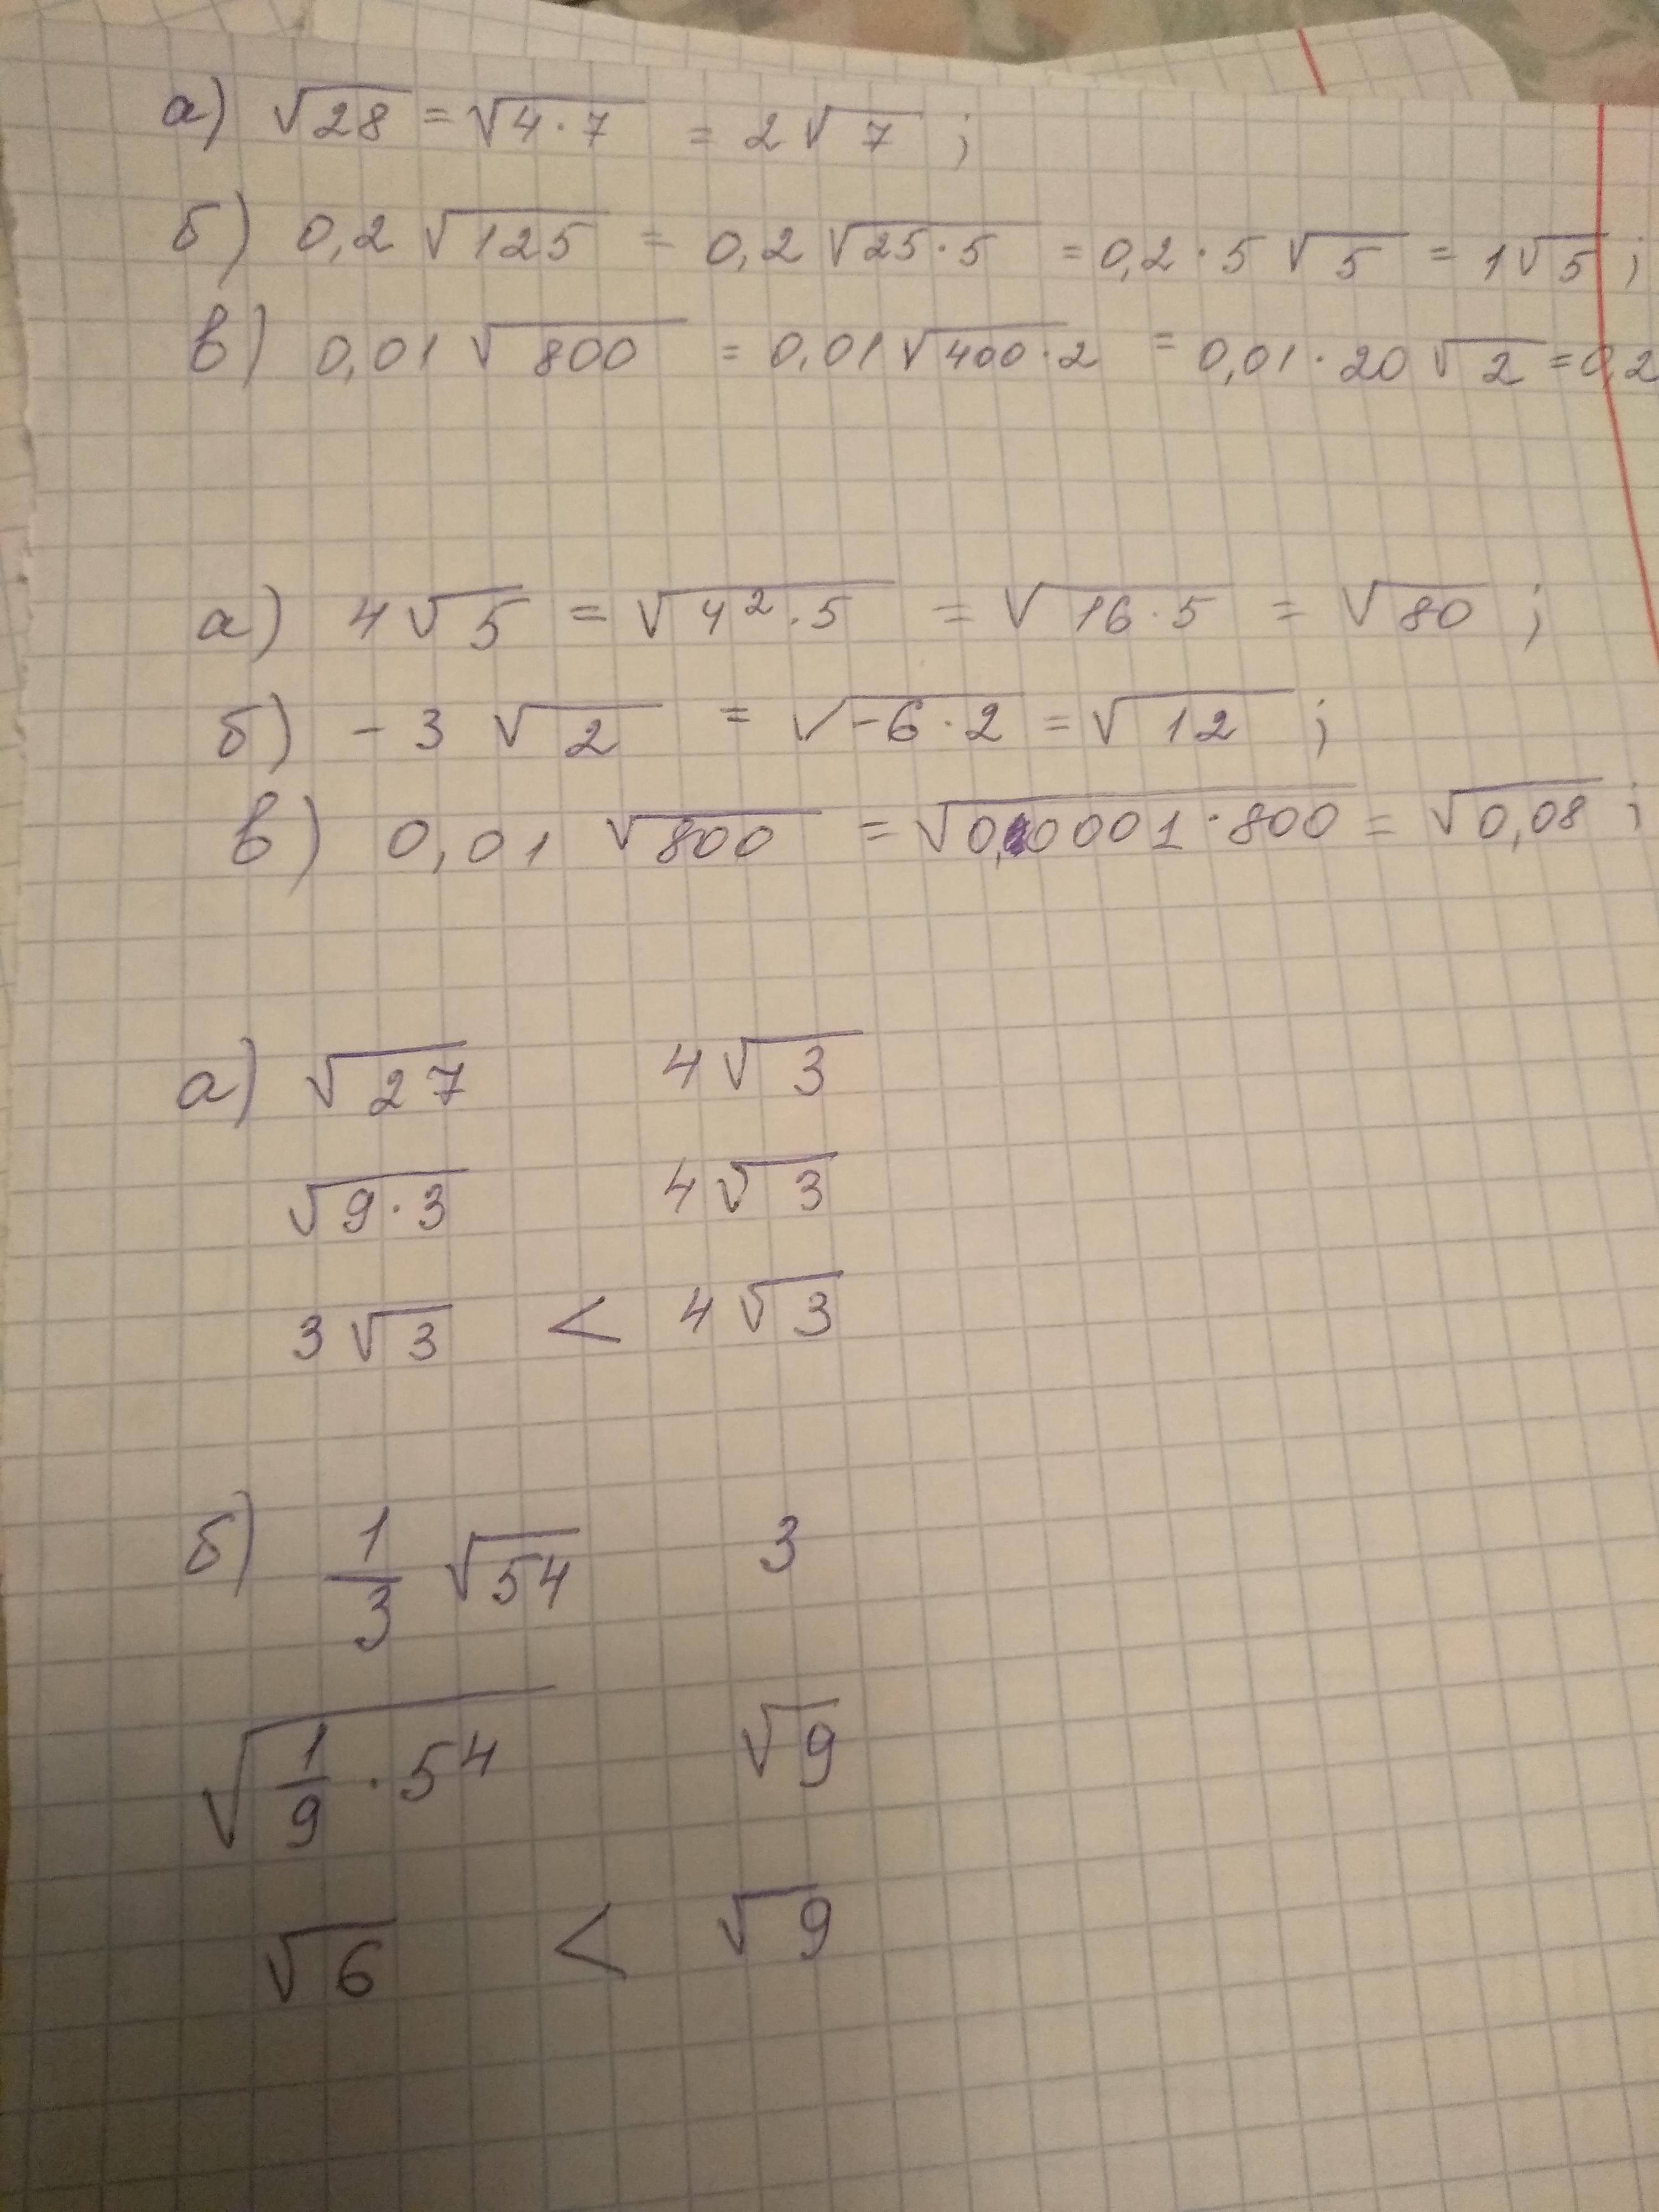 а) √28 = √4·7 = 2√7 ;
б) 0,2√125 = 0,2√25·5 = 0,2·5√5 = 1√5 ;
в) 0,01√800 = 0,01√400·2 = 0,01·20√2 = 0,2
а) 4√5 = √4²·5 = √16·5 = √80 ;
б) -3√2 = √-6·2 = √12 ;
в) 0,01√800 = √0,0001·800 = √0,08 ;
а) √27 4√3
√9·3 4√3
3√3 < 4√3
б) 1/3 √54 3
√1/9·54 √9
√6 < √9